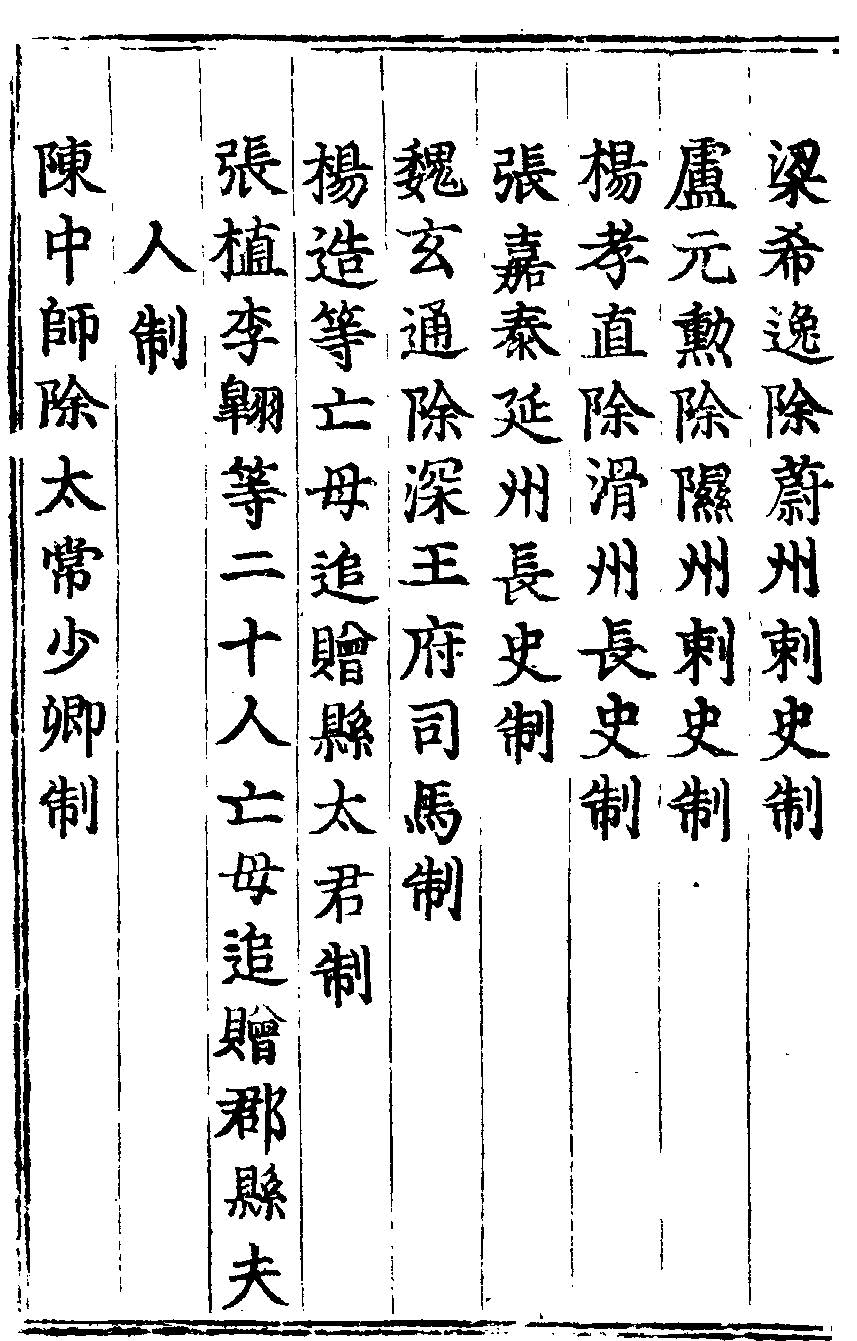 梁希逸除蔚州刺史制
盧元勳除隰州刺史制
楊孝直除滑州長史制
張嘉泰延州長史制
魏玄通除深王府司馬制
楊造等亡母追贈縣太君制
張植李翺等二十人亡母追贈郡縣夫
人制
陳中師除太常少卿制